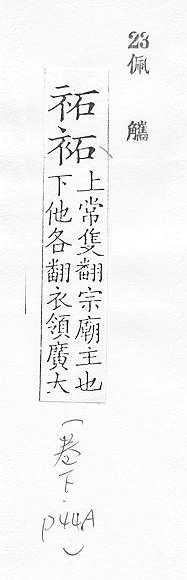 23
佩觿
祏袥
上常隻翻宗廟主也
下他各翻衣領廣大
(卷下.
p44A)